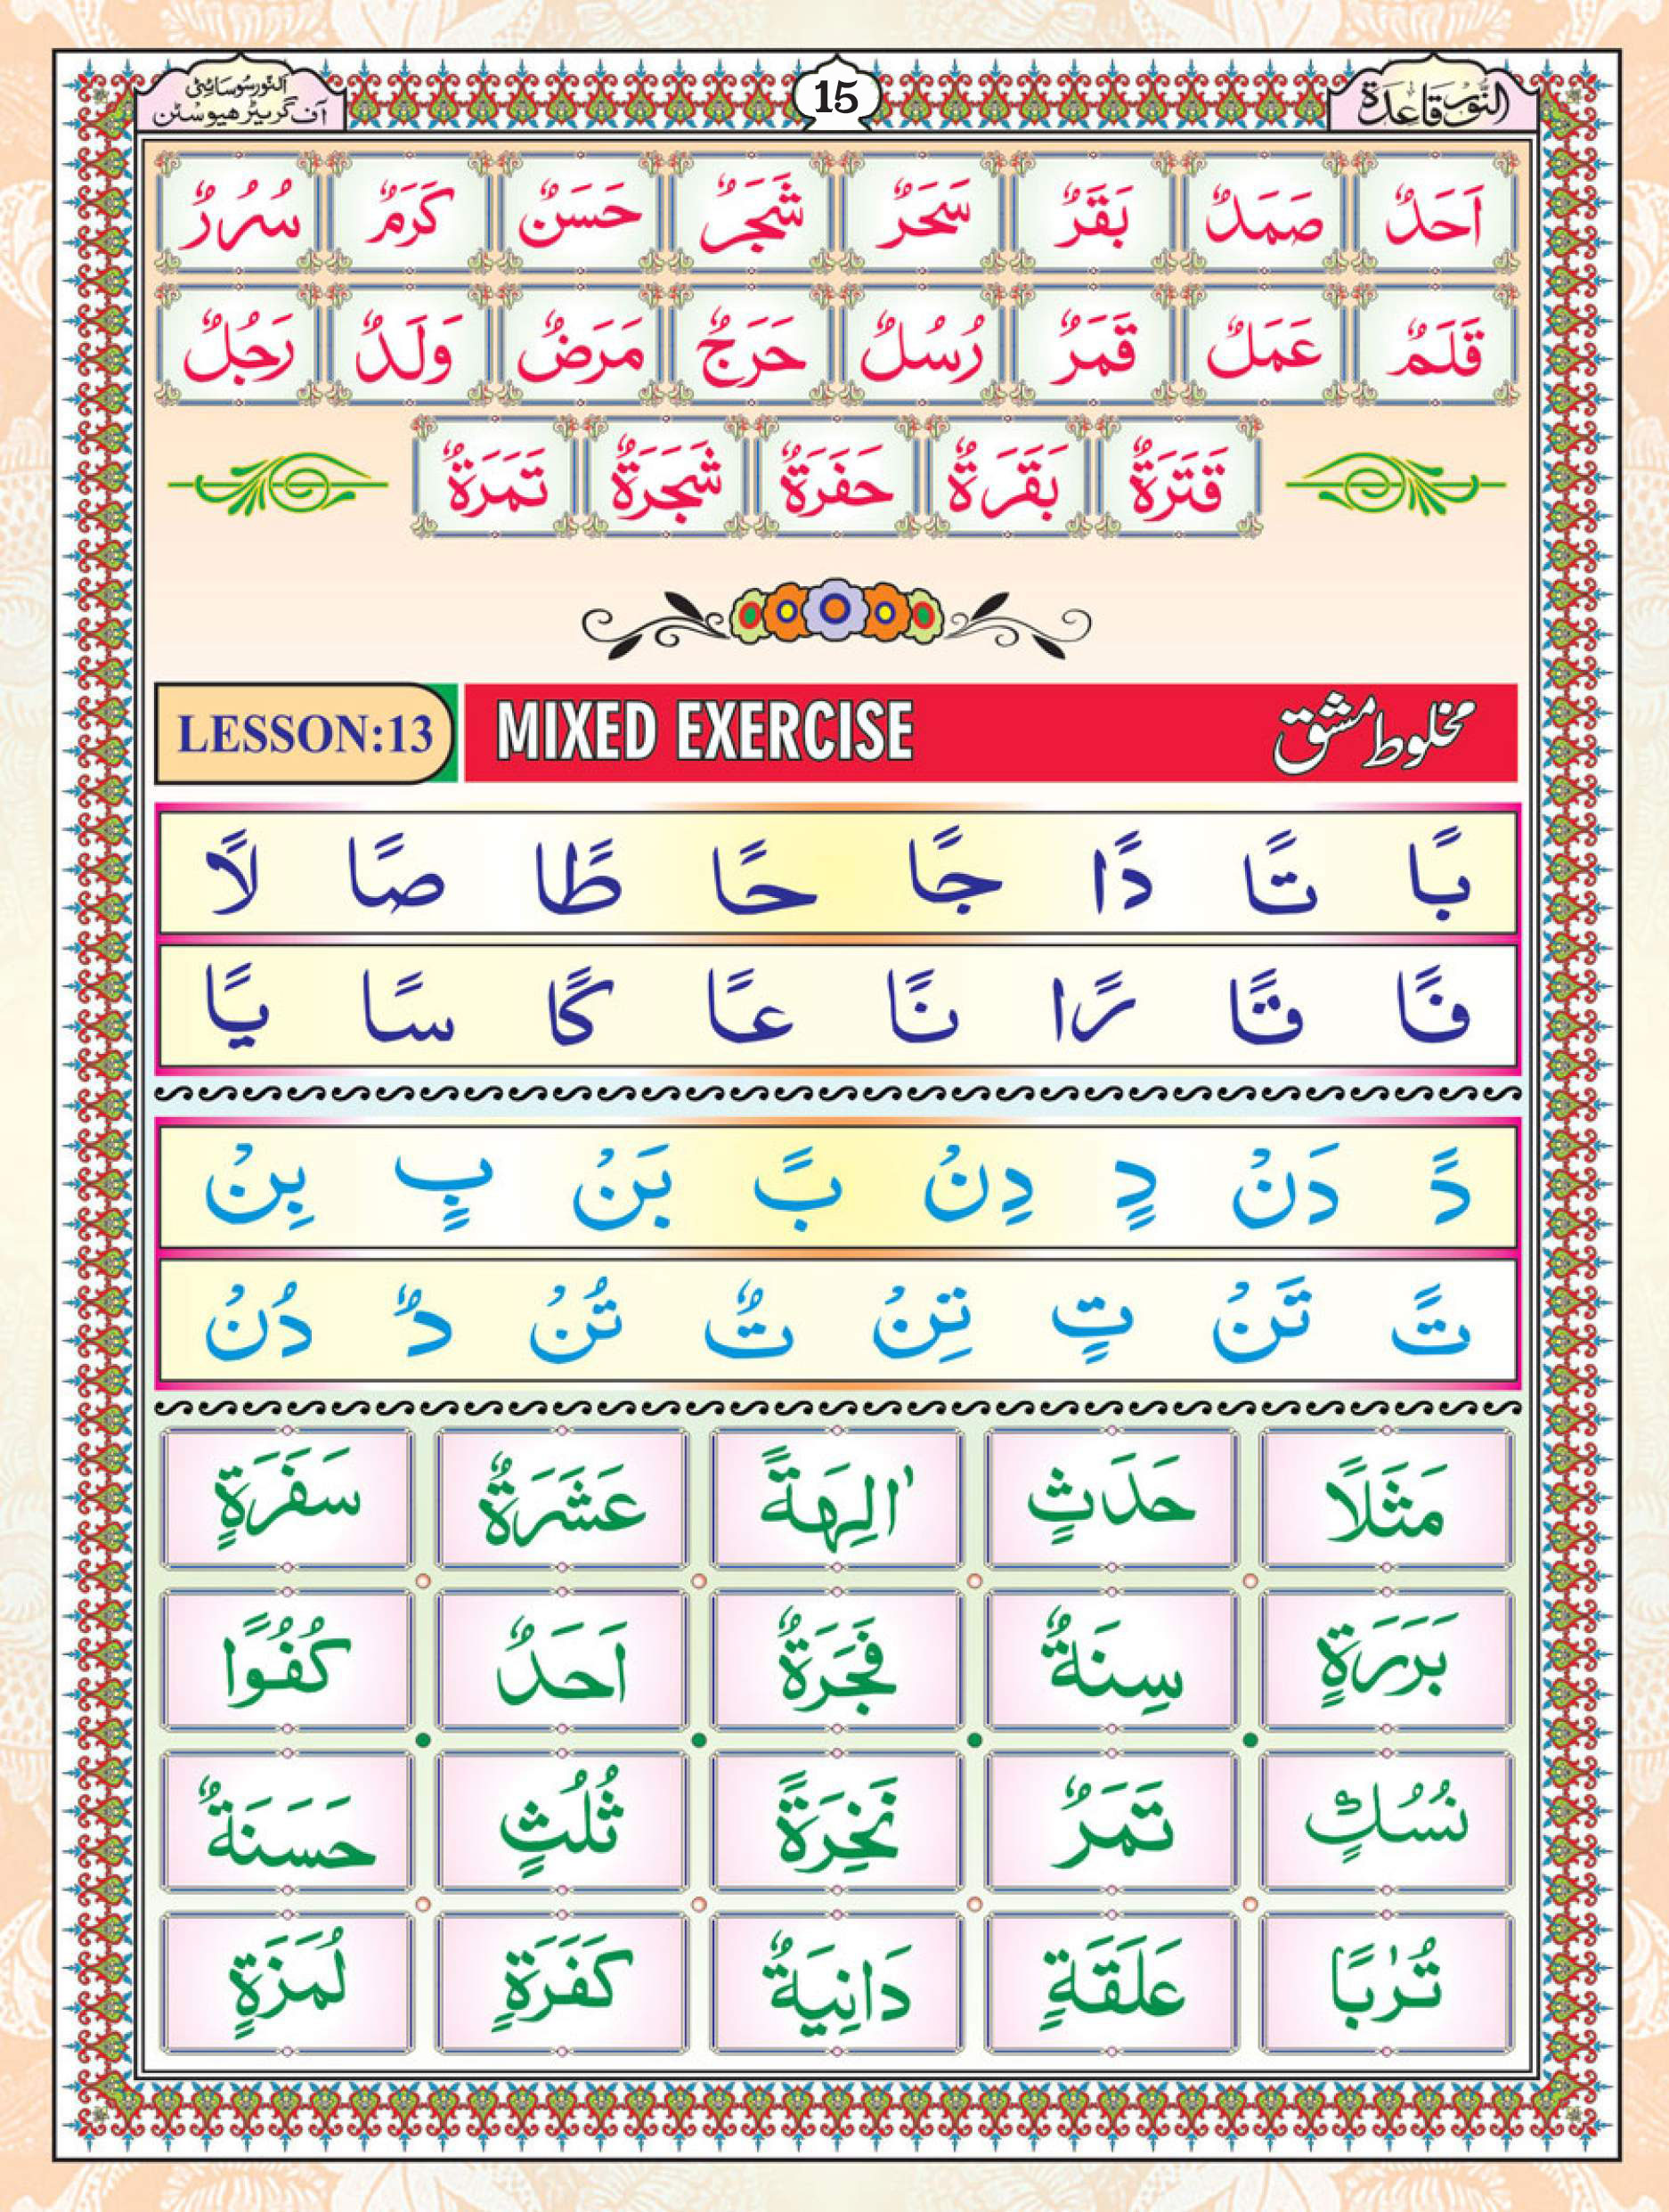 النُّور قَاعِدَة 15 اَلنُّور سُوسَائِٹی
آف گریٹر ھیوسٹن
اَحَدٌ صَمَدٌ بَقَرٌ سَحَرٌ شَجَرٌ حَسَنٌ كَرَمٌ سُرُرٌ
قَلَمٌ عَمَلٌ قَمَرٌ رُسُلٌ حَرَجٌ مَرَضٌ وَلَدٌ رَجُلٌ
قَتَرَةٌ بَقَرَةٌ حَفَرَةٌ شَجَرَةٌ تَمَرَةٌ
LESSON:13 MIXED EXERCISE مخلوط مشق
بًا تًا دًا جًا حًا طًا صًا لًا
فًا قًا رًا نًا عًا كًا سًا يًا
دً دَنْ دٍ دِنْ بً بَنْ بٍ بِنْ
تً تَنْ تٍ تِنْ تٌ تُنْ دٌ دُنْ
مَثَلًا حَدَثٍ اٰلِهَةً عَشَرَةٌ سَفَرَةٍ
بَرَرَةٍ سِنَةٌ فَجَرَةٌ اَحَدٌ كُفُوًا
نُسُكٍ تَمَرٌ نَخِرَةً ثُلُثٍ حَسَنَةٌ
تُرٰبًا عَلَقَةٍ دَانِيَةٌ كَفَرَةٍ لُمَزَةٍ